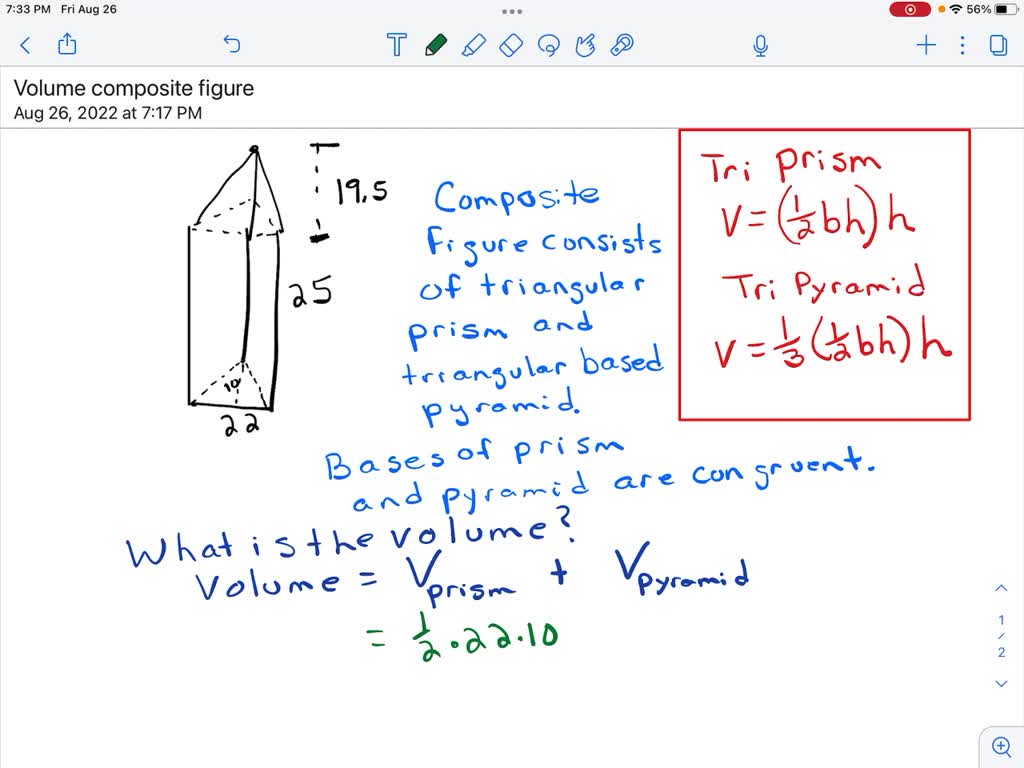 7:33 PM Fri Aug 26
56%
T
Volume composite figure
Aug 26, 2022 at 7:17 PM
19.5
25
10
22
Composite
figure consists
of triangular
prism and
triangular based
pyramid.
Bases of prism
and pyramid are congruent.
Tri Prism
V = (1/2 bh) h
Tri Pyramid
V = 1/3 (1/2 bh) h
What is the volume?
Volume = Vprism + Vpyramid
= 1/2 · 22 · 10
1
/
2